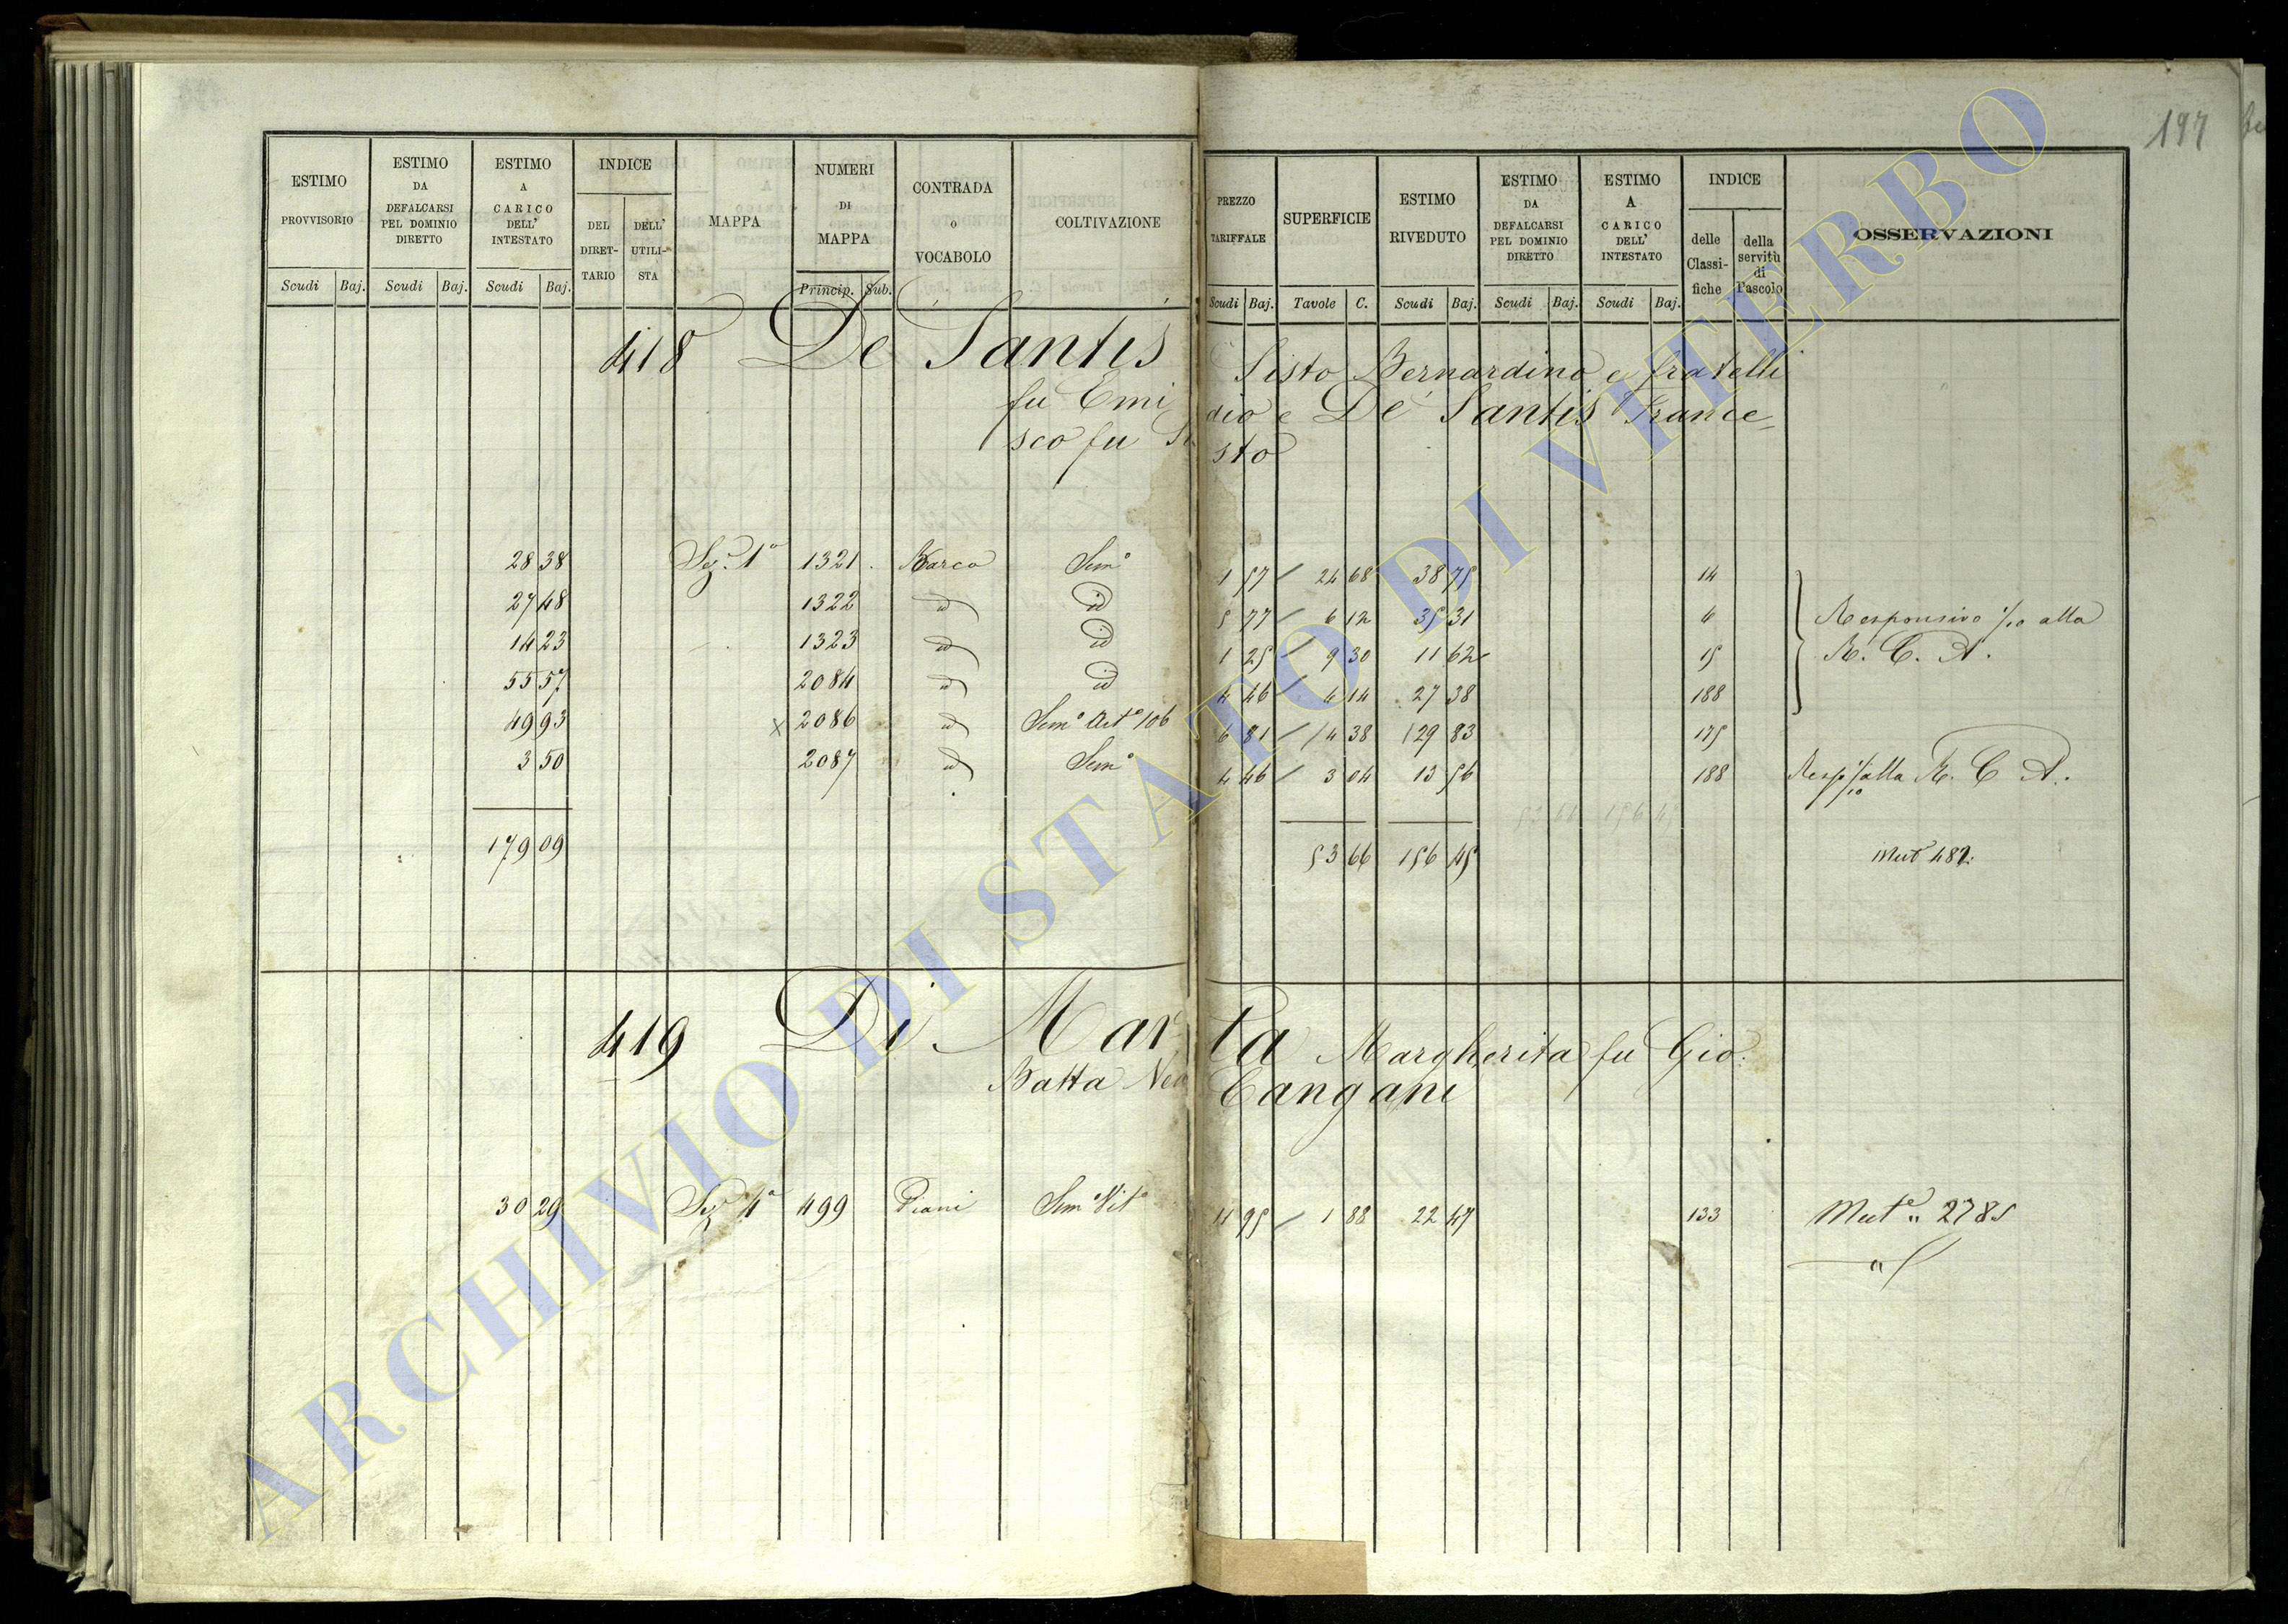 197
ESTIMO PROVVISORIO Scudi Baj.
ESTIMO DA DEFALCARSI PEL DOMINIO DIRETTO Scudi Baj.
ESTIMO A CARICO DELL' INTESTATO Scudi Baj.
INDICE DEL DIRET-TARIO DELL' UTILI-STA
MAPPA
NUMERI DI MAPPA Princip. Sub.
CONTRADA o VOCABOLO
COLTIVAZIONE
PREZZO TARIFFALE Scudi Baj.
SUPERFICIE Tavole C.
ESTIMO RIVEDUTO Scudi Baj.
ESTIMO DA DEFALCARSI PEL DOMINIO DIRETTO Scudi Baj.
ESTIMO A CARICO DELL' INTESTATO Scudi Baj.
INDICE delle Classi-fiche della servitù di Pascolo
OSSERVAZIONI
418 De Santis Sisto Bernardino e fratelli
fu Emidio e De Santis France
sco fu Sisto
28 38 Sez. 1a 1321 Barco Sem.o 1 57 24 68 38 75 14
27 48 1322 id id 5 77 6 12 35 31 6 Responsivo 1/10 alla
14 23 1323 id id 1 25 9 30 11 62 15 R. C. A.
55 57 2084 id id 4 46 4 14 27 38 188
49 93 x 2086 id Sem.o Art.o 106 6 81 14 38 129 83 175
3 50 2087 id Sem.o 4 46 3 04 13 56 188 Resp 1/10 alla R. C. A.
179 09 53 66 156 45 Mut 482
419 Di Marta Margherita fu Gio:
Batta Ved Cangani
30 29 Sez. 4a 499 Piani Sem.o Vit.o 11 95 1 88 22 47 133 Mut.e " 2785
ARCHIVIO DI STATO DI VITERBO